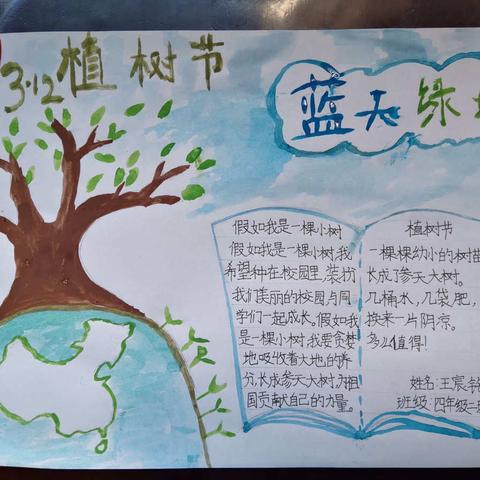 3·12 植树节
蓝天绿
假如我是一棵小树
假如我是一棵小树,我
希望种在校园里,装扮
我们美丽的校园与同
学们一起成长。假如我
是一棵小树,我要贪婪
地吸收着大地的养
分,长成参天大树,为祖
国贡献自己的力量。
植树节
一棵棵幼小的树苗
长成了参天大树。
几桶水,几袋肥,
换来一片阴凉。
多么值得!
姓名:王宸
班级:四年级一